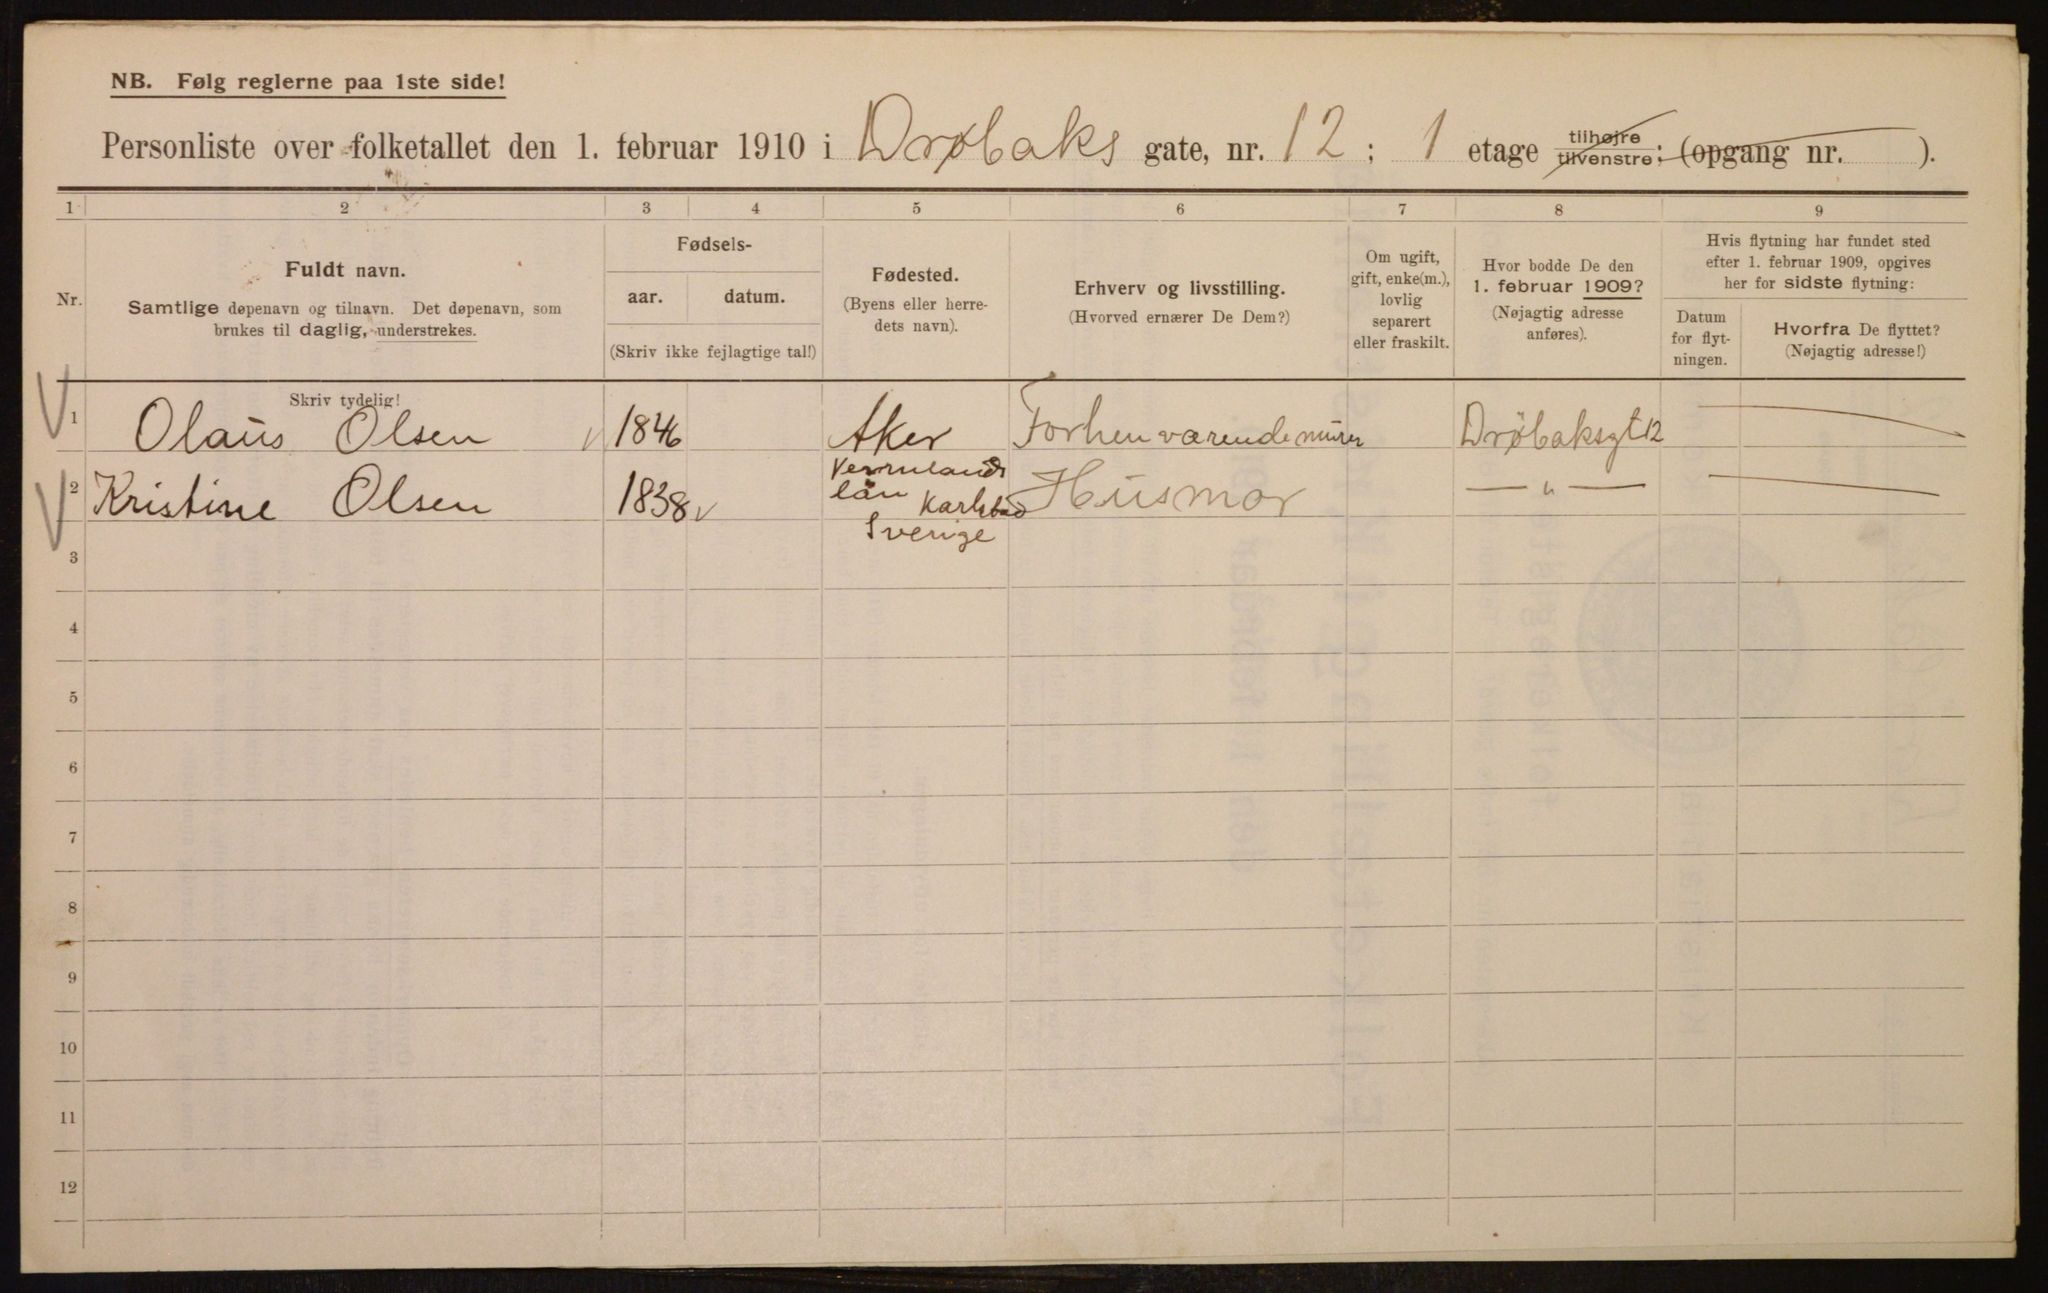 NB. Følg reglerne paa 1ste side!
Personliste over folketallet den 1. februar 1910 i Drøbaks gate, nr. 12 ; 1 etage tilhøjre tilvenstre; (opgang nr. ).
1 2 3 4 5 6 7 8 9
Nr.
Fuldt navn.
Samtlige døpenavn og tilnavn. Det døpenavn, som
brukes til daglig, understrekes.
Fødsels-
aar. datum.
(Skriv ikke fejlagtige tal!)
Fødested.
(Byens eller herre-
dets navn).
Erhverv og livsstilling.
(Hvorved ernærer De Dem?)
Om ugift,
gift, enke(m.),
lovlig
separert
eller fraskilt.
Hvor bodde De den
1. februar 1909?
(Nøjagtig adresse
anføres).
Hvis flytning har fundet sted
efter 1. februar 1909, opgives
her for sidste flytning:
Datum
for flyt-
ningen.
Hvorfra De flyttet?
(Nøjagtig adresse!)
Skriv tydelig!
1 Olaus Olsen 1846 Aker Forhenværende murer Drøbaksgt 12
2 Kristine Olsen 1838 Vermlands
län Karlstad
Sverige
Husmor — " —
3
4
5
6
7
8
9
10
11
12